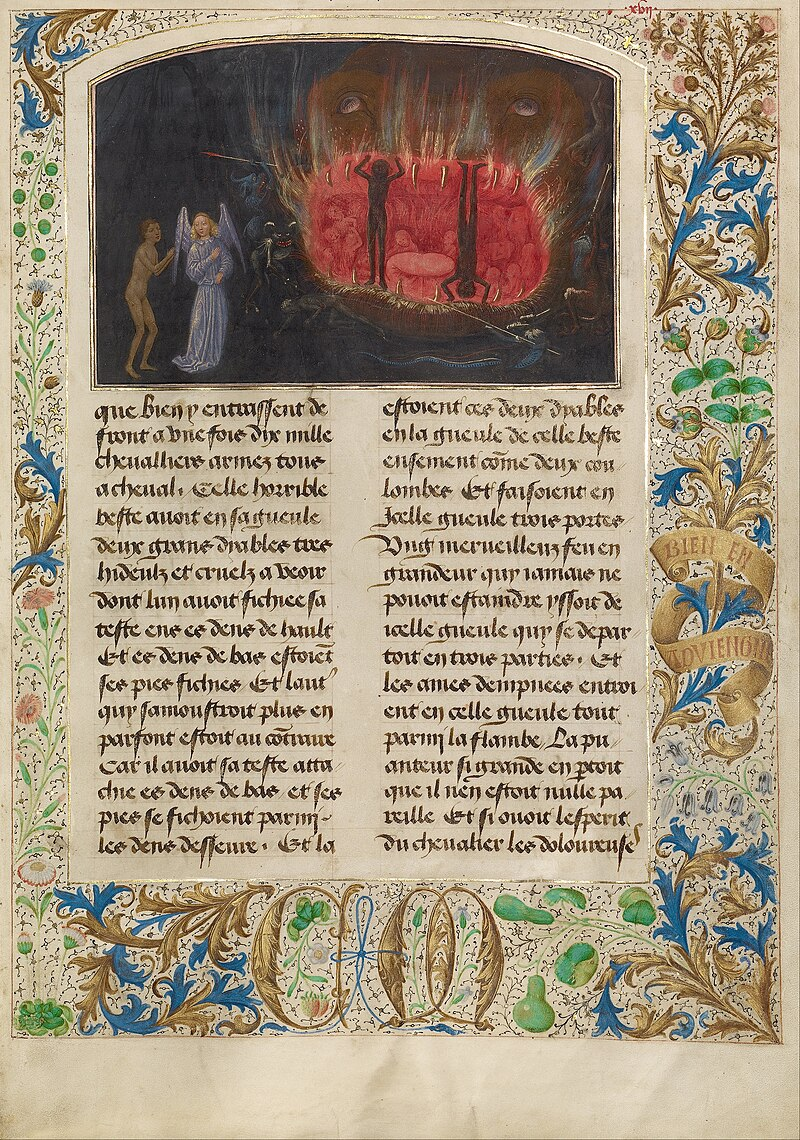 xvii
que bien y entrassent de
front a une fois dix mille
chevalliers armez tous
a cheval. Celle horrible
beste avoit en sa gueule
deux grans dyables tres
hideulx et cruelz a veoir
dont lun avoit fichiee sa
teste ens es dens de hault
Et es dens de bas estoiẽt
ses pies fichies Et laut͛
quy samoustroit plus en
parfont estoit au cõtraire
Car il avoit sa teste atta
chie es dens de bas et ses
pies se fichoient parmi-
les dens desseure. Et la
estoient ces deux dyables
en la gueule de celle beste
ensement cõme deux cou-
lombes Et faisoient en
Icelle gueule trois portes
Ung merveilleux feu en
grandeur quy iamais ne
pouoit estaindre yssoit de
icelle gueule quy se depar
toit en trois parties. Et
les ames dempnees entroi
ent en celle gueule tout
parmi la flambe. La pu
anteur si grande en ꝑtoit
que il nen estoit nulle pa-
reille Et si ouoit lesperit
du chevalier les doloureuse
BIEN EN
AVIENGNE
C M